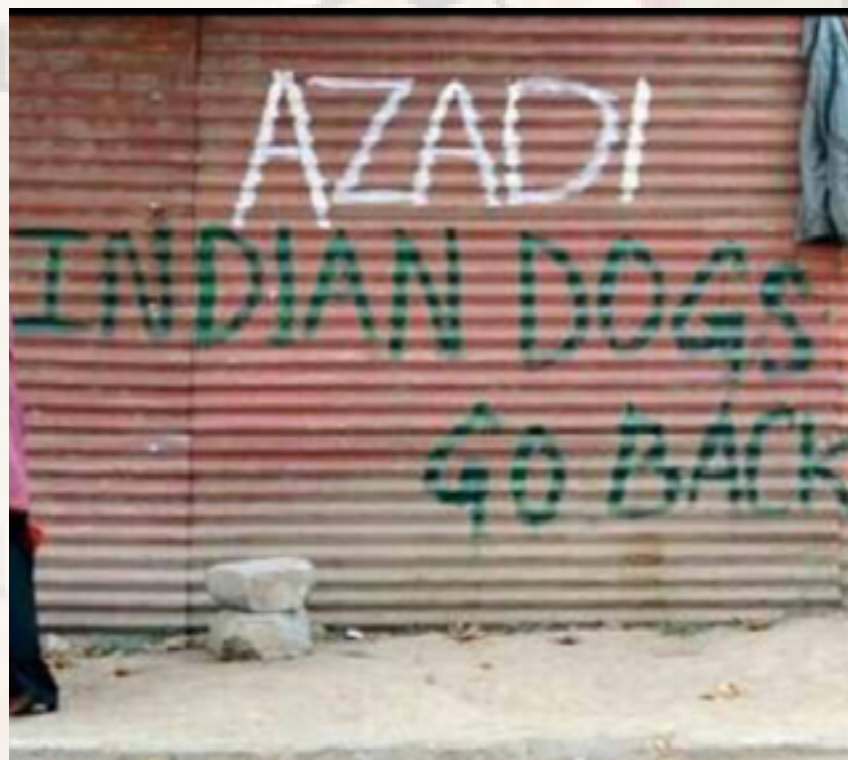 AZADI
INDIAN DOGS
GO BACK